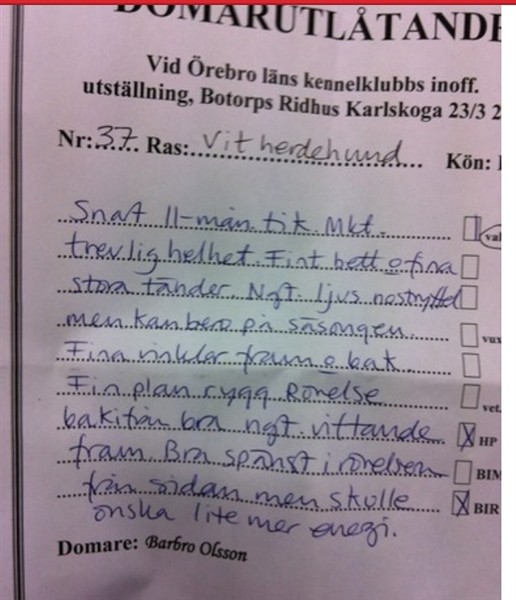 DOMARUTLÅTANDE
Vid Örebro läns kennelklubbs inoff.
utställning, Botorps Ridhus Karlskoga 23/3 2
Nr: 37 Ras: Vit herdehund Kön:
Snart 11-mån tik. Mkt. val
trevlig helhet. Fint bett o fina
stora tänder. Ngt. ljus nostryffel
men kan bero på säsongen. vux
Fina vinklar fram o bak.
Fin plan rygg Rörelse vet.
bakifrån bra ngt. vittande HP
fram Bra spänst i rörelsen BIM
från sidan men skulle BIR
önska lite mer energi.
Domare: Barbro Olsson